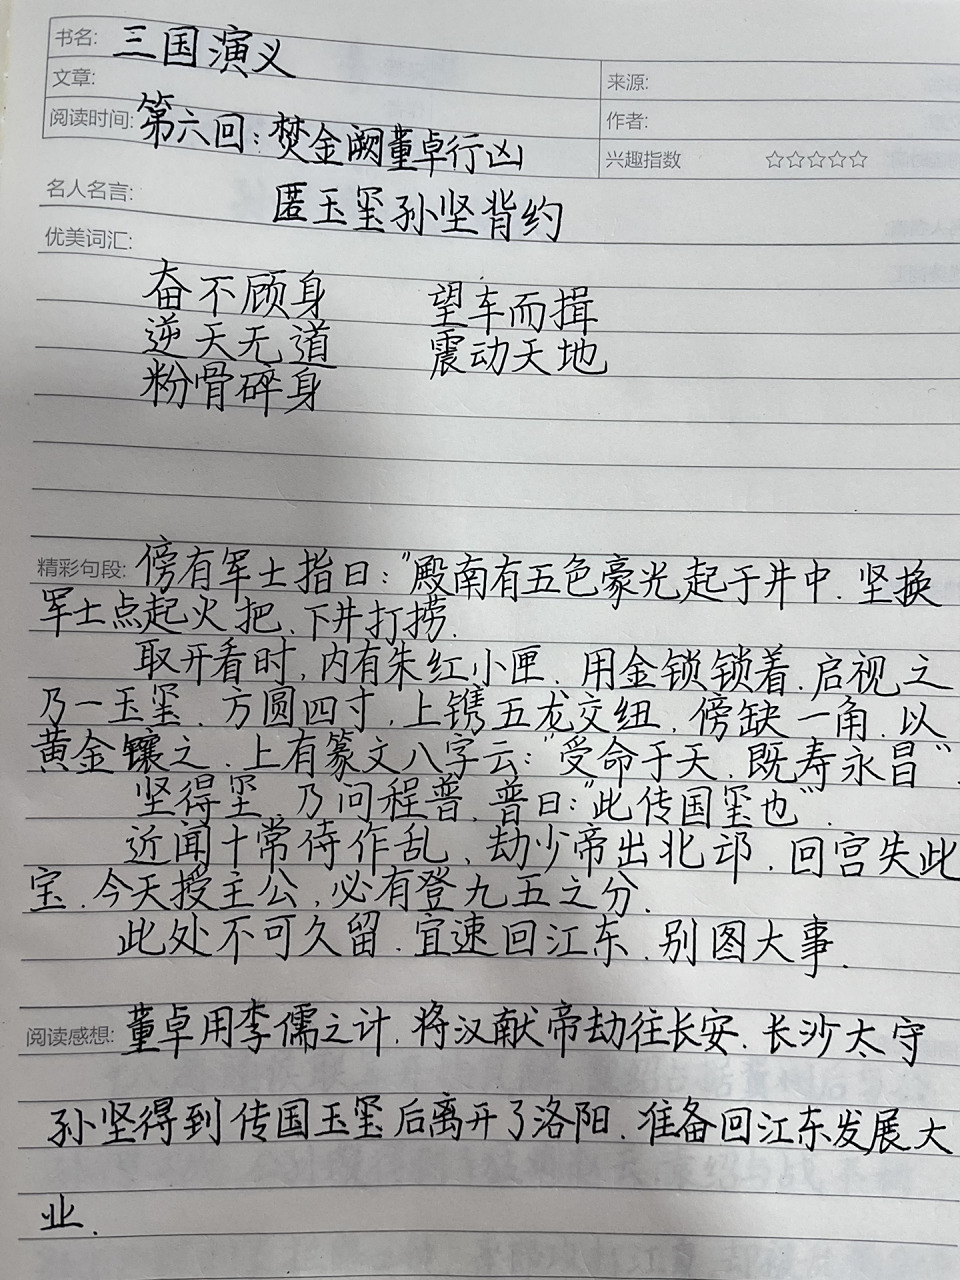 书名: 三国演义
文章:
来源:
阅读时间: 第六回：焚金阙董卓行凶
作者:
兴趣指数 ☆☆☆☆☆
名人名言: 匿玉玺孙坚背约
优美词汇:
奋不顾身 望车而揖
逆天无道 震动天地
粉骨碎身
精彩句段: 傍有军士指曰："殿南有五色豪光起于井中.坚换
军士点起火把、下井打捞.
取开看时,内有朱红小匣、用金锁锁着.启视之
乃一玉玺、方圆四寸,上镌五龙交纽、傍缺一角、以
黄金镶之、上有篆文八字云："受命于天、既寿永昌".
坚得玺 乃问程普、普曰："此传国玺也".
近闻十常侍作乱、劫少帝出北邙、回宫失此
宝.今天授主公,必有登九五之分.
此处不可久留.宜速回江东、别图大事.
阅读感想: 董卓用李儒之计.将汉献帝劫往长安.长沙太守
孙坚得到传国玉玺后离开了洛阳.准备回江东发展大
业.